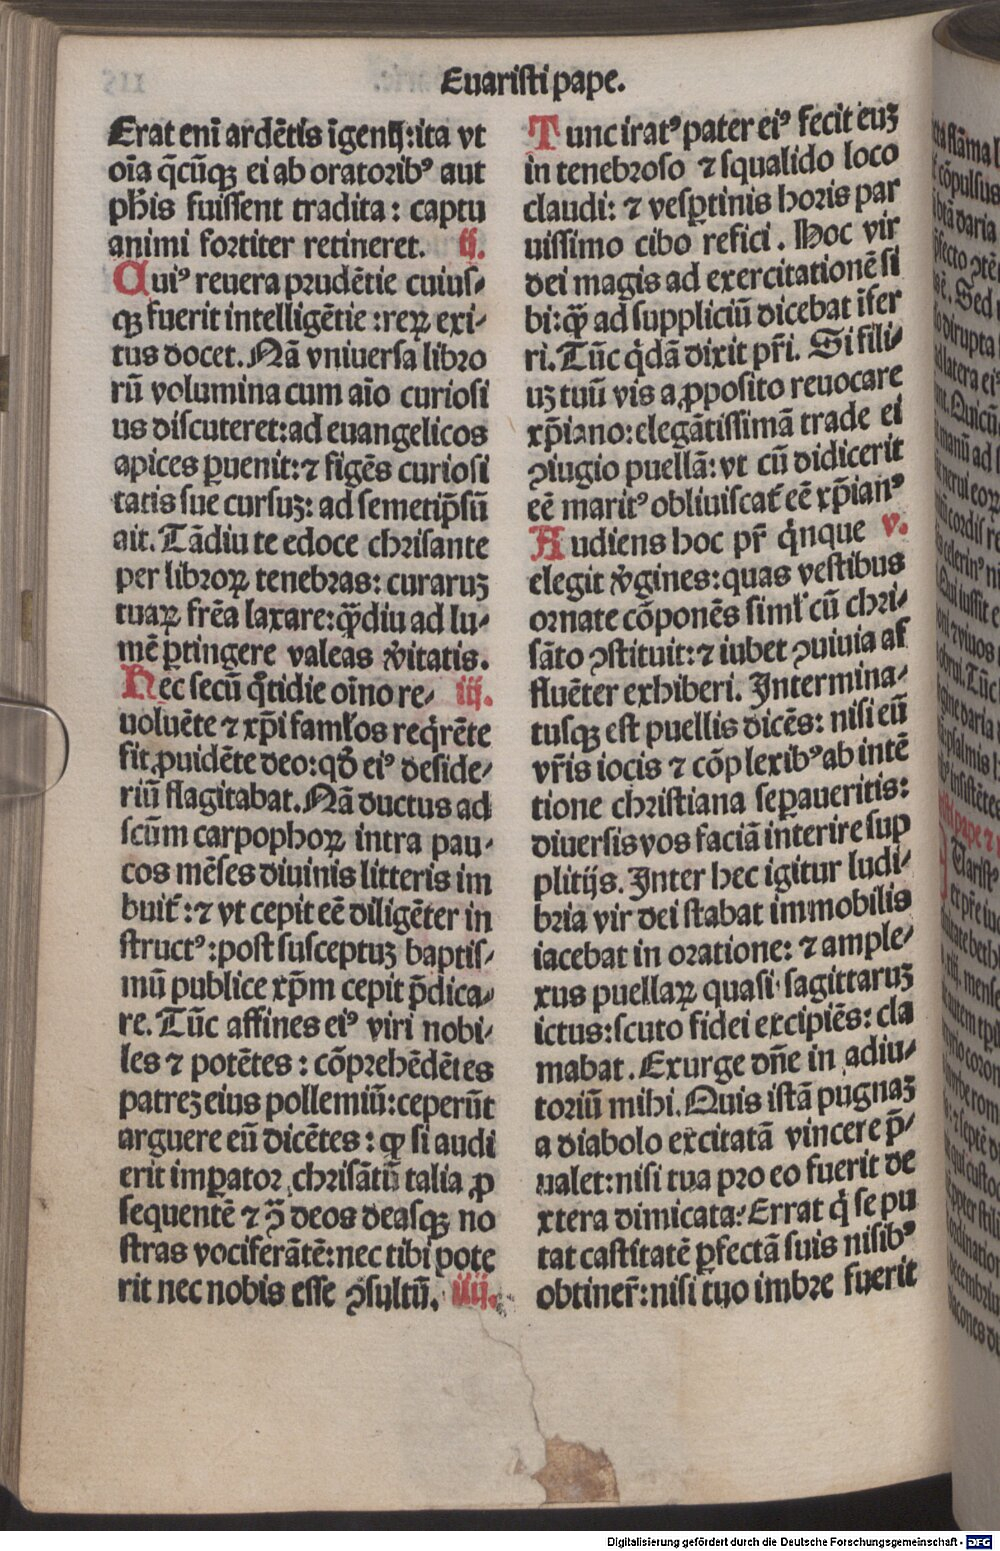 Euaristi pape.
Erat eni̅ arde̅tis i̅genij:ita vt
oi̅a q̅cu̅qꝫ ei ab oratoribꝰ aut
ph̅is fuissent tradita: captu
animi fortiter retineret. ij.
Cuiꝰ reuera prude̅tie cuius⸗
qꝫ fuerit intellige̅tie:reꝝ exi⸗
tus docet. Na̅ vniuersa libro
ru̅ volumina cum aı̅o curiosi
us discuteret:ad euangelicos
apices ꝑuenit:⁊ fige̅s curiosi
tatis sue cursuꝫ: ad semetip̅su̅
ait. Ta̅diu te edoce chrisante
per libroꝝ tenebras: curaruꝫ
tuaꝝ fre̅a laxare:qua̅diu ad lu⸗
me̅ ꝑtingere valeas v̾itatis.
Hec secu̅ q̊tidie oi̅no re⸗ iij.
uolue̅te ⁊ xp̅i faml̅os req̊re̅te
fit ꝓuide̅te deo:qđ eiꝰ deside⸗
riu̅ flagitabat. Na̅ ductus ad
scu̅m carpophoꝝ intra pau⸗
cos me̅ses diuinis litteris im
buit᷑:⁊ vt cepit ee̅ dilige̅ter in
structꝰ:post susceptuꝫ baptis⸗
mu̅ publice xp̅m cepit p̅dica⸗
re. Tu̅c affines eiꝰ viri nobi⸗
les ⁊ pote̅tes: co̅prehe̅de̅tes
patreꝫ eius pollemiu̅:ceperu̅t
arguere eu̅ dice̅tes: ꝙ si audi
erit imꝑator chrisa̅tu̅ talia ꝓ
sequente̅ ⁊ ꝯ̅ deos deasqꝫ no
stras vocifera̅te̅:nec tibi pote
rit nec nobis esse ꝯsultu̅. iiij.
Tunc iratꝰ pater eiꝰ fecit euꝫ
in tenebroso ⁊ squalido loco
claudi: ⁊ vesꝑtinis horis par
uissimo cibo refici. Hoc vir
dei magis ad exercitatione̅ si
bi:qua̅ ad suppliciu̅ dicebat i̅fer
ri. Tu̅c q̊da̅ dixit pr̅i. Si fili⸗
uꝫ tuu̅ vis a ꝓposito reuocare
xp̅iano:elega̅tissima̅ trade ei
ꝯiugio puella̅: vt cu̅ didicerit
ee̅ maritꝰ obliuiscat᷑ ee̅ xp̅ianꝰ
Audiens hoc pr̅ q̊nque v.
elegit v̾gines:quas vestibus
ornate co̅pone̅s siml̕ cu̅ chri⸗
sa̅to ꝯstituit:⁊ iubet ꝯuiuia af
flue̅ter exhiberi. Intermina⸗
tusqꝫ est puellis dice̅s: nisi eu̅
vr̅is iocis ⁊ co̅plexibꝰ ab inte̅
tione christiana seꝑaueritis:
diuersis vos facia̅ interire sup
plitijs. Inter hec igitur ludi⸗
bria vir dei stabat immobilis
iacebat in oratione: ⁊ ample⸗
xus puellaꝝ quasi sagittaruꝫ
ictus:scuto fidei excipie̅s: cla
mabat. Exurge dn̅e in adiu⸗
toriu̅ mihi. Quis ista̅ pugnaꝫ
a diabolo excitata̅ vincere p̅⸗
ualet:nisi tua pro eo fuerit de
xtera dimicata? Errat q̊ se pu
tat castitate̅ ꝑfecta̅ suis nisibꝰ
obtiner̅:nisi tuo imbre fuerit
Digitalisierung gefördert durch die Deutsche Forschungsgemeinschaft - DFG